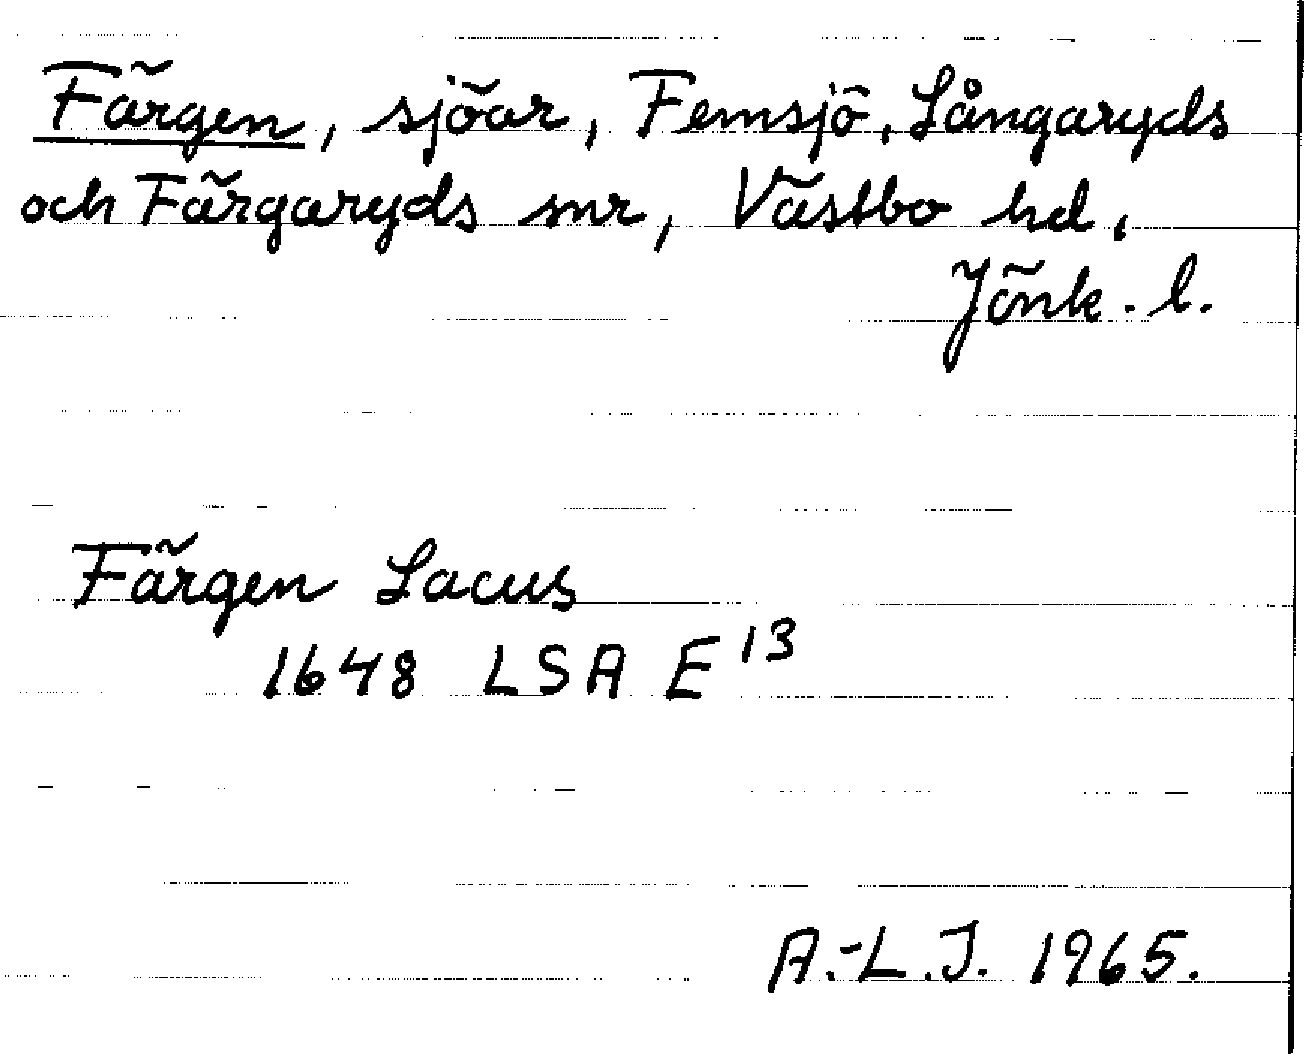 Färgen, sjöar, Femsjö, Långaryds
och Färgaryds snr, Västbo hd,
Jönk. l.
Färgen Lacus
1648 LSA E 13
A.-L.J. 1965.